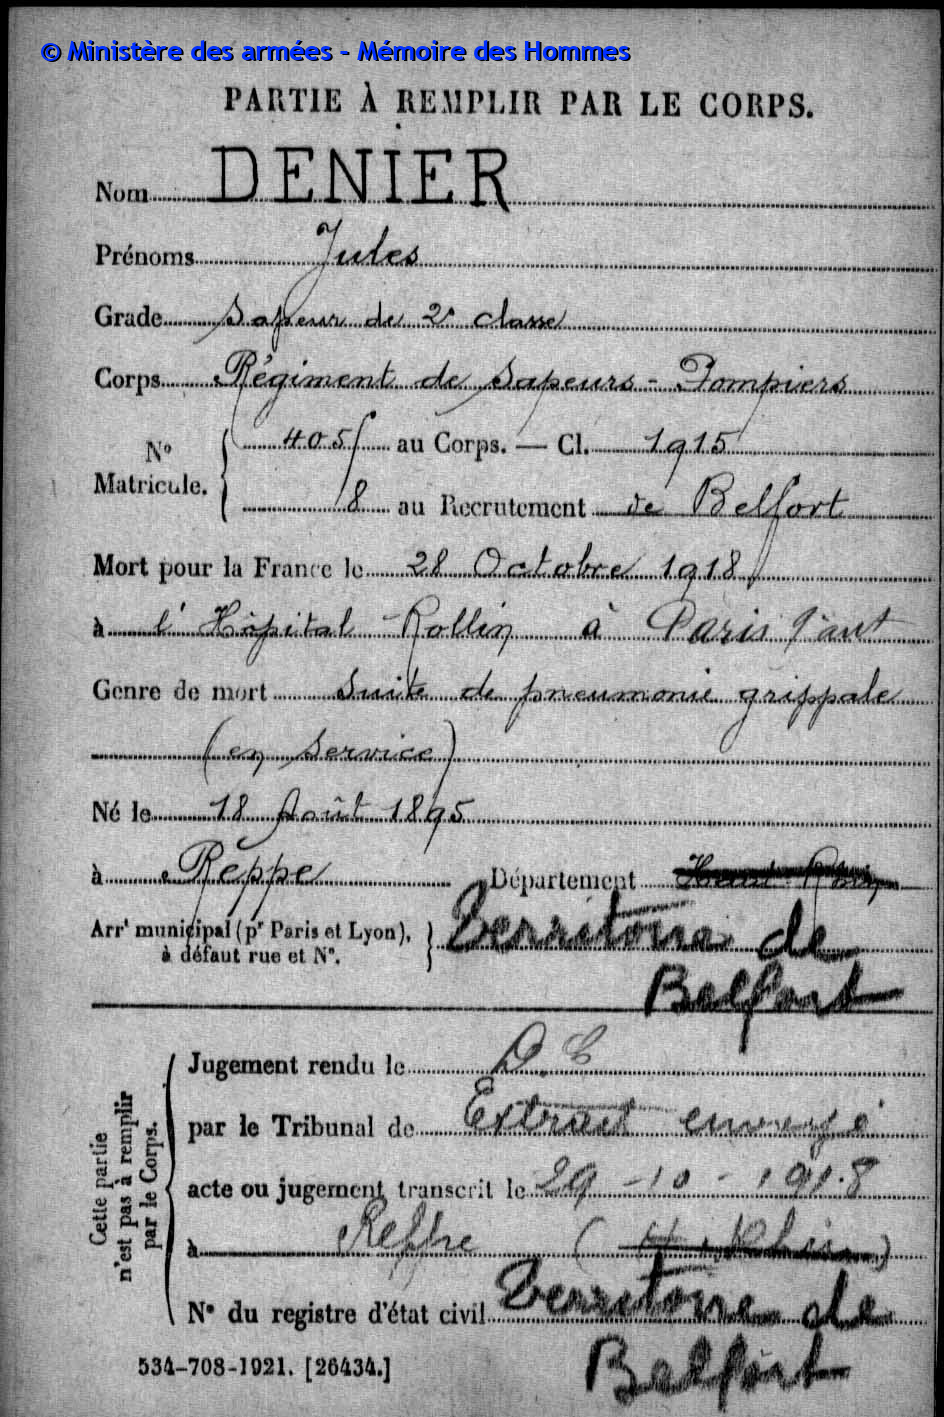 © Ministère des armées - Mémoire des Hommes
PARTIE À REMPLIR PAR LE CORPS.
Nom DENIER
Prénoms Jules
Grade Sapeur de 2e classe
Corps Régiment de Sapeurs-Pompiers
No Matricule. 405 au Corps. — Cl. 1915
8 au Recrutement de Belfort
Mort pour la France le 28 Octobre 1918
à l'Hôpital Rollin à Paris
Genre de mort suite de pneumonie grippale
(en service)
Né le 18 Août 1895
à Reppe Département Haut-Rhin
Arrt municipal (pr Paris et Lyon), Territoire de
à défaut rue et No. Belfort
Cette partie n'est pas à remplir par le Corps.
Jugement rendu le D. C
par le Tribunal de Extrait envoyé
acte ou jugement transcrit le 29-10-1918
à Reppe (H. Rhin)
No du registre d'état civil Territoire de
Belfort
534-708-1921. [26434.]